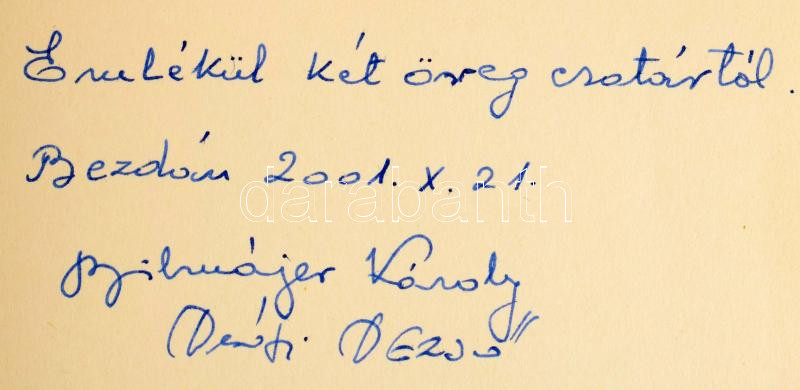 Emlékül két öreg csatártól.
Bezdán 2001. X. 21.
darabanth
Károly
Dezső